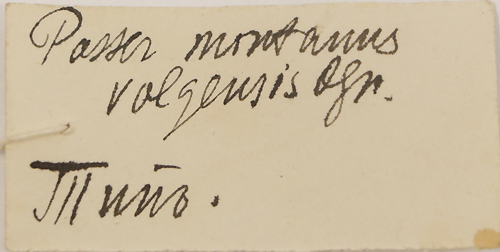 Passer montanus
volgensis Ogn.
Типо.